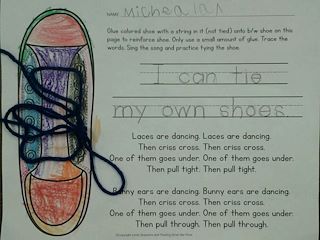 NAME Micheal
Glue colored shoe with a string in it (not tied) onto b/w shoe on this
page to reinforce shoe. Only use a small amount of glue. Trace the
words. Sing the song and practice tying the shoe.
I can tie
my own shoes.
Laces are dancing. Laces are dancing.
Then criss cross. Then criss cross.
One of them goes under. One of them goes under.
Then pull tight. Then pull tight.
Bunny ears are dancing. Bunny ears are dancing.
Then criss cross. Then criss cross.
One of them goes under. One of them goes under.
Then pull through. Then pull through.